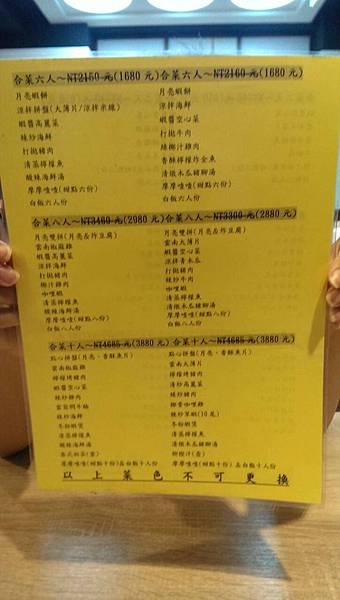 合菜六人～NT2150 元(1680 元)
月亮蝦餅
涼拌拼盤(大薄片/涼拌米線)
蝦醬高麗菜
辣炒海鮮
打拋豬肉
清蒸檸檬魚
酸辣海鮮湯
摩摩喳喳(甜點六份)
白飯六人份
合菜六人～NT2160 元(1680 元)
月亮蝦餅
涼拌海鮮
蝦醬空心菜
打拋牛肉
辣椰汁雞肉
香酥檸檬炸全魚
清燉木瓜豬腳湯
摩摩喳喳(甜點六份)
白飯六人份
合菜八人～NT3460 元(2980 元)
月亮雙拼(月亮&炸豆腐)
雲南椒麻雞
蝦醬高麗菜
涼拌海鮮
打拋豬肉
椰汁雞肉
咖哩蝦
清蒸檸檬魚
酸辣海鮮湯
摩摩喳喳(甜點八份)
白飯八人份
合菜八人～NT3300 元(2880 元)
月亮雙拼(月亮&炸豆腐)
雲南大薄片
蝦醬空心菜
涼拌青木瓜
打拋豬肉
辣炒牛肉
咖哩蝦
清蒸檸檬魚
清燉木瓜豬腳湯
摩摩喳喳(甜點八份)
白飯八人份
合菜十人～NT4685 元(3880 元)
點心拼盤(月亮、香酥魚片)
雲南椒麻雞
檸檬烤豬肉
蝦醬空心菜
辣炒雞肉
冬粉蝦煲
清蒸檸檬魚
酸辣海鮮湯
泰式奶茶(壺)
摩摩喳喳(甜點十份)&白飯十人份
合菜十人～NT4685 元(3880 元)
點心拼盤(月亮、香酥魚片)
雲南大薄片
檸檬烤豬肉
清炒高麗菜
辣炒豬肉
椰香咖哩雞
辣炒草蝦(10 尾)
冬粉蝦煲
清蒸檸檬魚
清燉木瓜豬腳湯
柳橙汁(壺)
摩摩喳喳(甜點十份)&白飯十人份
以上菜色不可更換